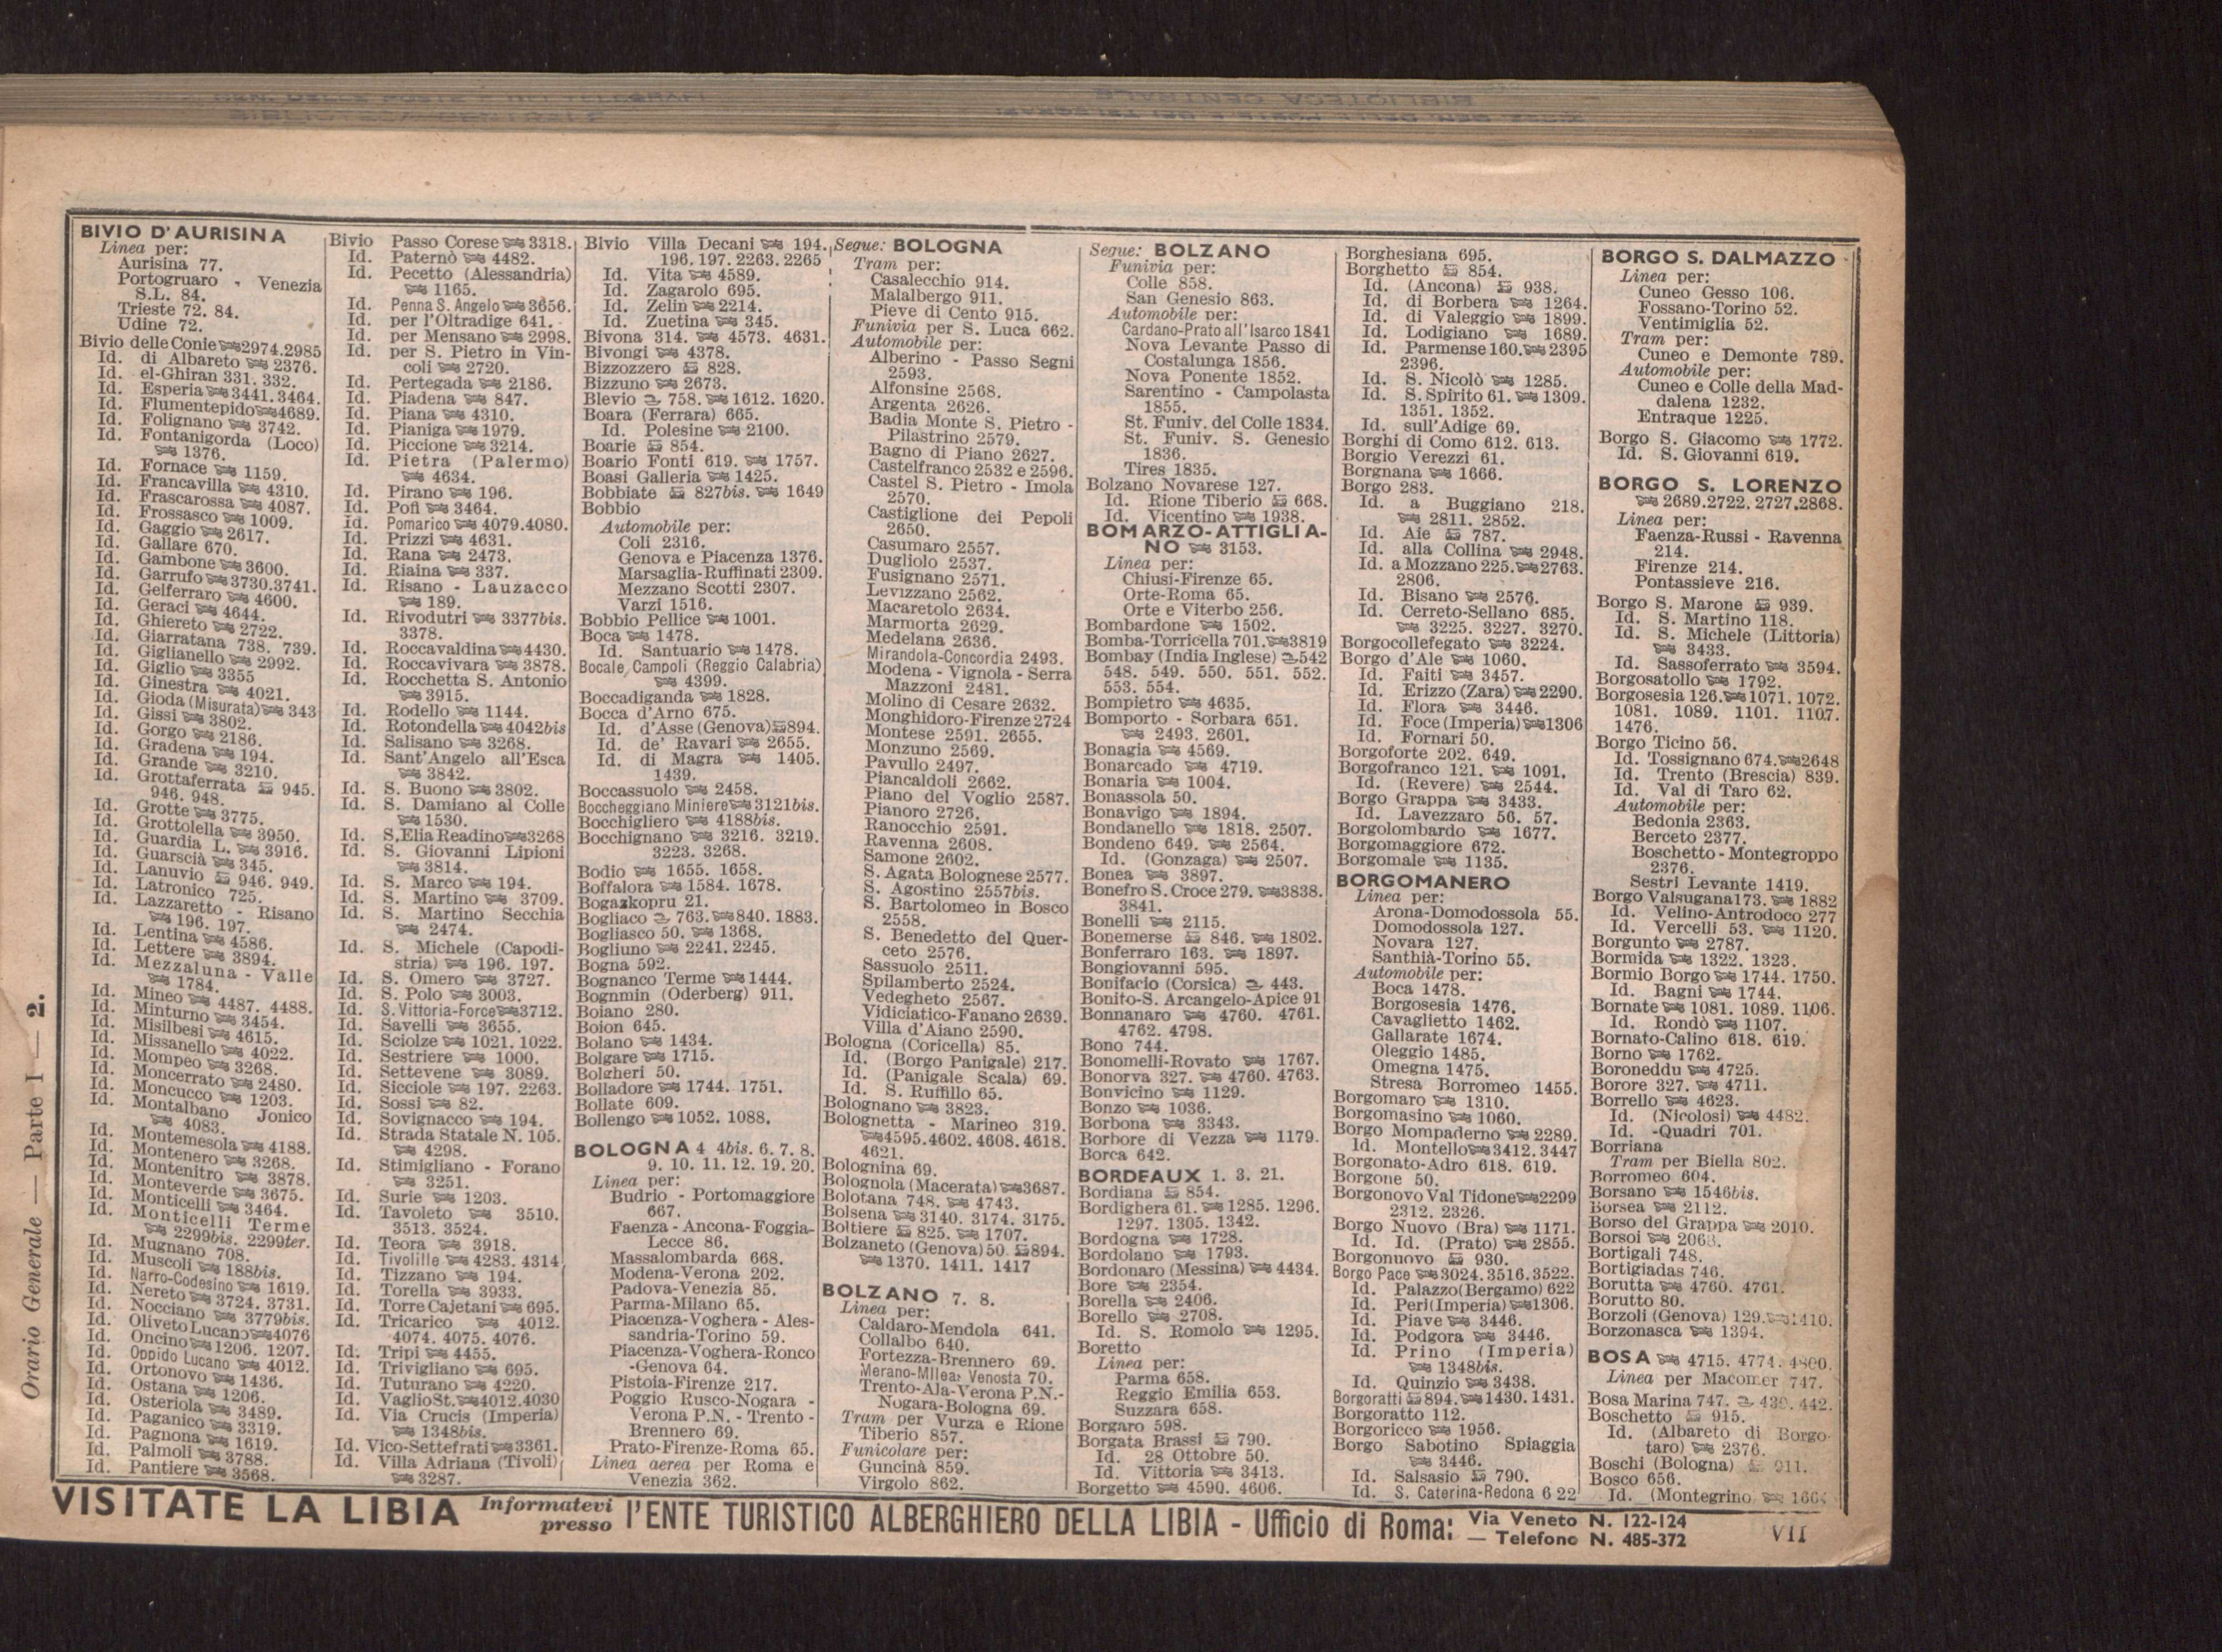 BIVIO D'AURISINA
Linea per:
Aurisina 77.
Portogruaro - Venezia
S.L. 84.
Trieste 72. 84.
Udine 72.
Bivio delle Conie 2974.2985
Id. di Albareto 2376.
Id. el-Ghiran 331. 332.
Id. Esperia 3441.3464.
Id. Flumentepido 4689.
Id. Folignano 3742.
Id. Fontanigorda (Loco)
1376.
Id. Fornace 1159.
Id. Francavilla 4310.
Id. Frascarossa 4087.
Id. Frossasco 1009.
Id. Gaggio 2617.
Id. Gallare 670.
Id. Gambone 3600.
Id. Garrufo 3730.3741.
Id. Gelferraro 4600.
Id. Geraci 4644.
Id. Ghiereto 2722.
Id. Giarratana 738. 739.
Id. Giglianello 2992.
Id. Giglio 3355
Id. Ginestra 4021.
Id. Gioda (Misurata) 343
Id. Gissi 3802.
Id. Gorgo 2186.
Id. Gradena 194.
Id. Grande 3210.
Id. Grottaferrata 945.
946. 948.
Id. Grotte 3775.
Id. Grottolella 3950.
Id. Guardia L. 3916.
Id. Guarscià 345.
Id. Lanuvio 946. 949.
Id. Latronico 725.
Id. Lazzaretto - Risano
196. 197.
Id. Lentina 4586.
Id. Lettere 3894.
Id. Mezzaluna - Valle
1784.
Id. Mineo 4487. 4488.
Id. Minturno 3454.
Id. Misilbesi 4615.
Id. Missanello 4022.
Id. Mompeo 3268.
Id. Moncerrato 2480.
Id. Moncucco 1203.
Id. Montalbano Jonico
4083.
Id. Montemesola 4188.
Id. Montenero 3268.
Id. Montenitro 3878.
Id. Monteverde 3675.
Id. Monticelli 3464.
Id. Monticelli Terme
2299bis. 2299ter.
Id. Mugnano 708.
Id. Muscoli 188bis.
Id. Narro-Codesino 1619.
Id. Nereto 3724. 3731.
Id. Nocciano 3779bis.
Id. Oliveto Lucano 4076
Id. Oncino 1206. 1207.
Id. Oppido Lucano 4012.
Id. Ortonovo 1436.
Id. Ostana 1206.
Id. Osteriola 3489.
Id. Paganico 3319.
Id. Pagnona 1619.
Id. Palmoli 3788.
Id. Pantiere 3568.
Bivio Passo Corese 3318.
Id. Paternò 4482.
Id. Pecetto (Alessandria)
1165.
Id. Penna S. Angelo 3656.
Id. per l'Oltradige 641.
Id. per Mensano 2998.
Id. per S. Pietro in Vin-
coli 2720.
Id. Pertegada 2186.
Id. Piadena 847.
Id. Piana 4310.
Id. Pianiga 1979.
Id. Piccione 3214.
Id. Pietra (Palermo)
4634.
Id. Pirano 196.
Id. Pofi 3464.
Id. Pomarico 4079.4080.
Id. Prizzi 4631.
Id. Rana 2473.
Id. Riaina 337.
Id. Risano - Lauzacco
189.
Id. Rivodutri 3377bis.
3378.
Id. Roccavaldina 4430.
Id. Roccavivara 3878.
Id. Rocchetta S. Antonio
3915.
Id. Rodello 1144.
Id. Rotondella 4042bis
Id. Salisano 3268.
Id. Sant'Angelo all'Esca
3842.
Id. S. Buono 3802.
Id. S. Damiano al Colle
1530.
Id. S. Elia Readino 3268
Id. S. Giovanni Lipioni
3814.
Id. S. Marco 194.
Id. S. Martino 3709.
Id. S. Martino Secchia
2474.
Id. S. Michele (Capodi-
stria) 196. 197.
Id. S. Omero 3727.
Id. S. Polo 3003.
Id. S. Vittoria-Force 3712.
Id. Savelli 3655.
Id. Sciolze 1021. 1022.
Id. Sestriere 1000.
Id. Settevene 3089.
Id. Sicciole 197. 2263.
Id. Sossi 82.
Id. Sovignacco 194.
Id. Strada Statale N. 105.
4298.
Id. Stimigliano - Forano
3251.
Id. Surie 1203.
Id. Tavoleto 3510.
3513. 3524.
Id. Teora 3918.
Id. Tivolille 4283. 4314
Id. Tizzano 194.
Id. Torella 3933.
Id. Torre Cajetani 695.
Id. Tricarico 4012.
4074. 4075. 4076.
Id. Tripi 4455.
Id. Trivigliano 695.
Id. Tuturano 4220.
Id. Vaglio St. 4012.4030
Id. Via Crucis (Imperia)
1348bis.
Id. Vico-Settefrati 3361.
Id. Villa Adriana (Tivoli)
3287.
Bivio Villa Decani 194.
196. 197. 2263. 2265
Id. Vita 4589.
Id. Zagarolo 695.
Id. Zelin 2214.
Id. Zuetina 345.
Bivona 314. 4573. 4631.
Bivongi 4378.
Bizzozzero 828.
Bizzuno 2673.
Blevio 758. 1612. 1620.
Boara (Ferrara) 665.
Id. Polesine 2100.
Boarie 854.
Boario Fonti 619. 1757.
Boasi Galleria 1425.
Bobbiate 827bis. 1649
Bobbio
Automobile per:
Coli 2316.
Genova e Piacenza 1376.
Marsaglia-Ruffinati 2309.
Mezzano Scotti 2307.
Varzi 1516.
Bobbio Pellice 1001.
Boca 1478.
Id. Santuario 1478.
Bocale Campoli (Reggio Calabria)
4399.
Boccadiganda 1828.
Bocca d'Arno 675.
Id. d'Asse (Genova) 894.
Id. de' Ravari 2655.
Id. di Magra 1405.
1439.
Boccassuolo 2458.
Boccheggiano Miniere 3121bis.
Bocchigliero 4188bis.
Bocchignano 3216. 3219.
3223. 3268.
Bodio 1655. 1658.
Boffalora 1584. 1678.
Bogazkopru 21.
Bogliaco 763. 840. 1883.
Bogliasco 50. 1368.
Bogliuno 2241. 2245.
Bogna 592.
Bognanco Terme 1444.
Bognmin (Oderberg) 911.
Boiano 280.
Boion 645.
Bolano 1434.
Bolgare 1715.
Bolgheri 50.
Bolladore 1744. 1751.
Bollate 609.
Bollengo 1052. 1088.
BOLOGNA 4 4bis. 6. 7. 8.
9. 10. 11. 12. 19. 20.
Linea per:
Budrio - Portomaggiore
667.
Faenza - Ancona-Foggia-
Lecce 86.
Massalombarda 668.
Modena-Verona 202.
Padova-Venezia 85.
Parma-Milano 65.
Piacenza-Voghera - Ales-
sandria-Torino 59.
Piacenza-Voghera-Ronco
-Genova 64.
Pistoia-Firenze 217.
Poggio Rusco-Nogara -
Verona P.N. - Trento -
Brennero 69.
Prato-Firenze-Roma 65.
Linea aerea per Roma e
Venezia 362.
Segue: BOLOGNA
Tram per:
Casalecchio 914.
Malalbergo 911.
Pieve di Cento 915.
Funivia per S. Luca 662.
Automobile per:
Alberino - Passo Segni
2593.
Alfonsine 2568.
Argenta 2626.
Badia Monte S. Pietro -
Pilastrino 2579.
Bagno di Piano 2627.
Castelfranco 2532 e 2596.
Castel S. Pietro - Imola
2570.
Castiglione dei Pepoli
2650.
Casumaro 2557.
Dugliolo 2537.
Fusignano 2571.
Levizzano 2562.
Macaretolo 2634.
Marmorta 2629.
Medelana 2636.
Mirandola-Concordia 2493.
Modena - Vignola - Serra
Mazzoni 2481.
Molino di Cesare 2632.
Monghidoro-Firenze 2724
Montese 2591. 2655.
Monzuno 2569.
Pavullo 2497.
Piancaldoli 2662.
Piano del Voglio 2587.
Pianoro 2726.
Ranocchio 2591.
Ravenna 2608.
Samone 2602.
S. Agata Bolognese 2577.
S. Agostino 2557bis.
S. Bartolomeo in Bosco
2558.
S. Benedetto del Quer-
ceto 2576.
Sassuolo 2511.
Spilamberto 2524.
Vedegheto 2567.
Vidiciatico-Fanano 2639.
Villa d'Aiano 2590.
Bologna (Coricella) 85.
Id. (Borgo Panigale) 217.
Id. (Panigale Scala) 69.
Id. S. Ruffillo 65.
Bolognano 3823.
Bolognetta - Marineo 319.
4595.4602.4608.4618.
4621.
Bolognina 69.
Bolognola (Macerata) 3687.
Bolotana 748. 4743.
Bolsena 3140. 3174. 3175.
Boltiere 825. 1707.
Bolzaneto (Genova) 50. 894.
1370. 1411. 1417
BOLZANO 7. 8.
Linea per:
Caldaro-Mendola 641.
Collalbo 640.
Fortezza-Brennero 69.
Merano-Milea Venosta 70.
Trento-Ala-Verona P.N.-
Nogara-Bologna 69.
Tram per Vurza e Rione
Tiberio 857.
Funicolare per:
Guncinà 859.
Virgolo 862.
Segue: BOLZANO
Funivia per:
Colle 858.
San Genesio 863.
Automobile per:
Cardano-Prato all'Isarco 1841
Nova Levante Passo di
Costalunga 1856.
Nova Ponente 1852.
Sarentino - Campolasta
1855.
St. Funiv. del Colle 1834.
St. Funiv. S. Genesio
1836.
Tires 1835.
Bolzano Novarese 127.
Id. Rione Tiberio 668.
Id. Vicentino 1938.
BOMARZO-ATTIGLIA-
NO 3153.
Linea per:
Chiusi-Firenze 65.
Orte-Roma 65.
Orte e Viterbo 256.
Bombardone 1502.
Bomba-Torricella 701. 3819
Bombay (India Inglese) 542
548. 549. 550. 551. 552.
553. 554.
Bompietro 4635.
Bomporto - Sorbara 651.
2493. 2601.
Bonagia 4569.
Bonarcado 4719.
Bonaria 1004.
Bonassola 50.
Bonavigo 1894.
Bondanello 1818. 2507.
Bondeno 649. 2564.
Id. (Gonzaga) 2507.
Bonea 3897.
Bonefro S. Croce 279. 3838.
3841.
Bonelli 2115.
Bonemerse 846. 1802.
Bonferraro 163. 1897.
Bongiovanni 595.
Bonifacio (Corsica) 443.
Bonito-S. Arcangelo-Apice 91
Bonnanaro 4760. 4761.
4762. 4798.
Bono 744.
Bonomelli-Rovato 1767.
Bonorva 327. 4760. 4763.
Bonvicino 1129.
Bonzo 1036.
Borbona 3343.
Borbore di Vezza 1179.
Borca 642.
BORDEAUX 1. 3. 21.
Bordiana 854.
Bordighera 61. 1285. 1296.
1297. 1305. 1342.
Bordogna 1728.
Bordolano 1793.
Bordonaro (Messina) 4434.
Bore 2354.
Borella 2406.
Borello 2708.
Id. S. Romolo 1295.
Boretto
Linea per:
Parma 658.
Reggio Emilia 653.
Suzzara 658.
Borgaro 598.
Borgata Brassi 790.
Id. 28 Ottobre 50.
Id. Vittoria 3413.
Borgetto 4590. 4606.
Borghesiana 695.
Borghetto 854.
Id. (Ancona) 938.
Id. di Borbera 1264.
Id. di Valeggio 1899.
Id. Lodigiano 1689.
Id. Parmense 160. 2395
2396.
Id. S. Nicolò 1285.
Id. S. Spirito 61. 1309.
1351. 1352.
Id. sull'Adige 69.
Borghi di Como 612. 613.
Borgio Verezzi 61.
Borgnana 1666.
Borgo 283.
Id. a Buggiano 218.
2811. 2852.
Id. Aie 787.
Id. alla Collina 2948.
Id. a Mozzano 225. 2763.
2806.
Id. Bisano 2576.
Id. Cerreto-Sellano 685.
3225. 3227. 3270.
Borgocollefegato 3224.
Borgo d'Ale 1060.
Id. Faiti 3457.
Id. Erizzo (Zara) 2290.
Id. Flora 3446.
Id. Foce (Imperia) 1306
Id. Fornari 50.
Borgoforte 202. 649.
Borgofranco 121. 1091.
Id. (Revere) 2544.
Borgo Grappa 3433.
Id. Lavezzaro 56. 57.
Borgolombardo 1677.
Borgomaggiore 672.
Borgomale 1135.
BORGOMANERO
Linea per:
Arona-Domodossola 55.
Domodossola 127.
Novara 127.
Santhià-Torino 55.
Automobile per:
Boca 1478.
Borgosesia 1476.
Cavaglietto 1462.
Gallarate 1674.
Oleggio 1485.
Omegna 1475.
Stresa Borromeo 1455.
Borgomaro 1310.
Borgomasino 1060.
Borgo Mompaderno 2289.
Id. Montello 3412.3447
Borgonato-Adro 618. 619.
Borgone 50.
Borgonovo Val Tidone 2299
2312. 2326.
Borgo Nuovo (Bra) 1171.
Id. Id. (Prato) 2855.
Borgonuovo 930.
Borgo Pace 3024.3516.3522.
Id. Palazzo (Bergamo) 622
Id. Peri (Imperia) 1306.
Id. Piave 3446.
Id. Podgora 3446.
Id. Prino (Imperia)
1348bis.
Id. Quinzio 3438.
Borgoratti 894. 1430. 1431.
Borgoratto 112.
Borgoricco 1956.
Borgo Sabotino Spiaggia
3446.
Id. Salsasio 790.
Id. S. Caterina-Redona 6 22
BORGO S. DALMAZZO
Linea per:
Cuneo Gesso 106.
Fossano-Torino 52.
Ventimiglia 52.
Tram per:
Cuneo e Demonte 789.
Automobile per:
Cuneo e Colle della Mad-
dalena 1232.
Entraque 1225.
Borgo S. Giacomo 1772.
Id. S. Giovanni 619.
BORGO S. LORENZO
2689.2722. 2727.2868.
Linea per:
Faenza-Russi - Ravenna
214.
Firenze 214.
Pontassieve 216.
Borgo S. Marone 939.
Id. S. Martino 118.
Id. S. Michele (Littoria)
3433.
Id. Sassoferrato 3594.
Borgosatollo 1792.
Borgosesia 126. 1071. 1072.
1081. 1089. 1101. 1107.
1476.
Borgo Ticino 56.
Id. Tossignano 674. 2648
Id. Trento (Brescia) 839.
Id. Val di Taro 62.
Automobile per:
Bedonia 2363.
Berceto 2377.
Boschetto - Montegroppo
2376.
Sestri Levante 1419.
Borgo Valsugana 173. 1882
Id. Velino-Antrodoco 277
Id. Vercelli 53. 1120.
Borgunto 2787.
Bormida 1322. 1323.
Bormio Borgo 1744. 1750.
Id. Bagni 1744.
Bornate 1081. 1089. 1106.
Id. Rondò 1107.
Bornato-Calino 618. 619.
Borno 1762.
Boroneddu 4725.
Borore 327. 4711.
Borrello 4623.
Id. (Nicolosi) 4482.
Id. -Quadri 701.
Borriana
Tram per Biella 802.
Borromeo 604.
Borsano 1546bis.
Borsea 2112.
Borso del Grappa 2010.
Borsoi 2068.
Bortigali 748.
Bortigiadas 746.
Borutta 4760. 4761.
Borutto 80.
Borzoli (Genova) 129. 1410.
Borzonasca 1394.
BOSA 4715. 4774. 4800.
Linea per Macomer 747.
Bosa Marina 747. 439. 442.
Boschetto 915.
Id. (Albareto di Borgo-
taro) 2376.
Boschi (Bologna) 911.
Bosco 656.
Id. (Montegrino)
Orario Generale — Parte I — 2.
VISITATE LA LIBIA Informatevi presso l'ENTE TURISTICO ALBERGHIERO DELLA LIBIA - Ufficio di Roma: Via Veneto N. 122-124
— Telefono N. 485-372
VII